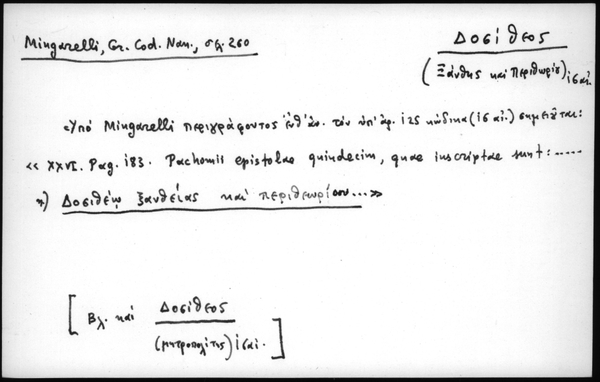 Mingarelli, Gr. Cod. Nan., σελ. 260
Δοσίθεος
(Ξάνθης καὶ Περιθωρίου) ις αἰ.
Ὑπό Mingarelli περιγράφοντος ἐνθ' ἀν. τὸν ὑπ' ἀρ. 125 κώδικα (ις αἰ.) σημειοῦται:
<< XXVI. Pag. 183. Pachomii epistolae quindecim, quae inscriptae sunt: .....
Δοσιθέῳ ξανθείας καὶ περιθεωρίου...>>
[Βλ. καὶ Δοσίθεος
(μητροπολίτης) ις αἰ.]